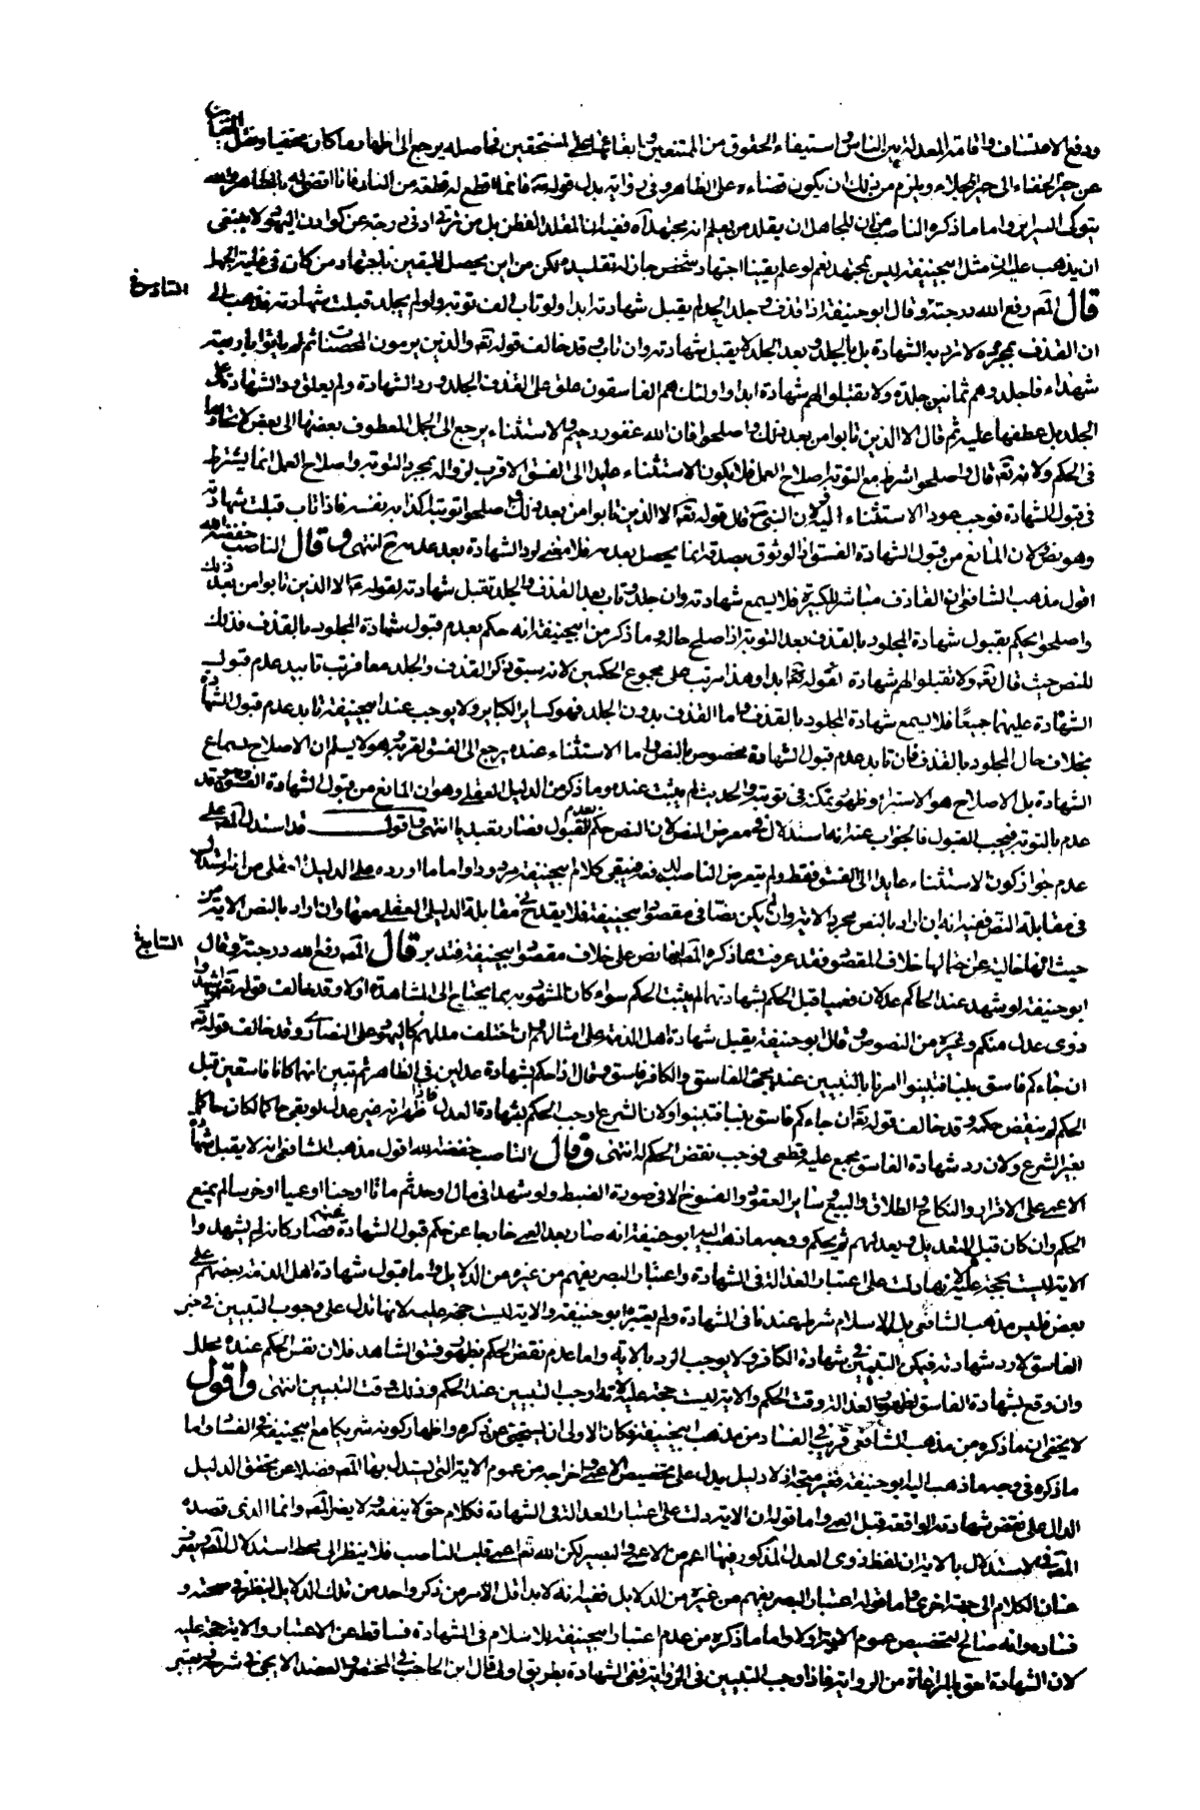 ودفع الاعتساف واقامة المعدلة بين الناس واستيفاء الحقوق من المتنعين وايقاعها على المستحقين فحاصله يرجع الى اظهار ما كان مخفيا ونقل
عن حيز الخفاء الى حيز الجلاء ويلزم من ذلك ان يكون قضاءه على الظاهر وفى ذاته بدل قوله ص فانما اقطع له قطعة من النار فانا اقضى له بالظاهر والله
يتولى السراير واما ما ذكره الناصب من ان للجاهل ان يقلد من يعلم انه مجتهد آه ففيه ان المقلد الفطن بل من ترقى ادنى درجة عن كوادن اليهود لا ينبغى
ان يذهب عليه ان مثل ابيحنيفة ليس بمجتهد نعم لو علم يقينا اجتهاد شخص جاز له تقليده لكن من اين يحصل اليقين باجتهاد من كان فى غاية الجهل
السادس
قال المصنف رفع الله درجته وقال ابو حنيفة اذا قذف وجلد الحد لم يقبل شهادته ابدا ولو تاب الف توبة ولو لم يجلد قبلت شهادته فذهب الى
ان القذف بمجرده لا ترد به الشهادة بل بالجلد وبعد الجلد لا يقبل شهادته وان تاب وقد خالف قوله تعالى والذين يرمون المحصنات ثم لم ياتوا باربعة
شهداء فاجلدوهم ثمانين جلدة ولا تقبلوا لهم شهادة ابدا واولئك هم الفاسقون علق على القذف الجلد ورد الشهادة ولم يعلق رد الشهادة على
الجلد بل عطفها عليه ثم قال الا الذين تابوا من بعد ذلك واصلحوا فان الله غفور رحيم والاستثناء يرجع الى الجمل المعطوف بعضها الى بعض لاتحادها
فى الحكم ولانه تعالى قال واصلحوا شرط مع التوبة اصلاح العمل فلا يكون الاستثناء عايدا الى الفسق الاقرب لزواله بمجرد التوبة واصلاح العمل انما يشترط
فى قبول الشهادة فوجب عود الاستثناء اليه ولان النبى ص قال قوله تعالى الا الذين تابوا من بعد ذلك واصلحوا توبته اكذابه نفسه فاذا تاب قبلت شهادته
وهو نص ولان المانع من قبول الشهادة الفسق اذ الوثوق بصدقه انما يحصل بعدمه فلا معنى لرد الشهادة بعد عدمه ح انتهى وقال الناصب خفضه الله
اقول مذهب الشافعى ان القاذف مباشر للكبيرة فلا يسمع شهادته وان جلد وتاب بعد القذف والجلد تقبل شهادته لقوله تعالى الا الذين تابوا من بعد ذلك
واصلحوا يحكم بقبول شهادة المجلود بالقذف بعد التوبة اذا صلح حاله وما ذكر من ابيحنيفة انه حكم بعدم قبول شهادة المجلود بالقذف فذلك
للنص حيث قال تعالى ولا تقبلوا لهم شهادة لقوله تعالى ابدا وهذا مرتب على مجموع الحكمين لانه سبق ذكر القذف والجلد معا فرتب تابيد عدم قبول
الشهادة عليهما جميعا فلا يسمع شهادة المجلود بالقذف واما القذف بدون الجلد فهو كساير الكباير ولا يوجب عند ابيحنيفة تابيد عدم قبول الشهادة
بخلاف حال المجلود بالقذف فان تابيد عدم قبول الشهادة مخصوص بالنص واما الاستثناء عنده يرجع الى الفسق لقربه وهو لا يسلم ان الاصلاح لسماع
الشهادة بل الاصلاح هو الاستمرار وظهور تمكنه فى توبته والحديث لم يثبت عنده وما ذكر من الدليل العقلى وهو ان المانع من قبول الشهادة الفسق وهو قد
عدم بالتوبة فيجب القبول فالجواب عنه انه استدلال فى معرض النص لان النص حكم بعدم القبول فصار تعبديا انتهى واقول قد استدل المصنف على
عدم جواز كون الاستثناء عايدا الى الفسق فقط ولم يتعرض الناصب لدفعه فبقى كلام ابيحنيفة مردودا واما ما اورده على الدليل العقلى من انه استدلال
فى مقابلة النص ففيه انه ان اراد بالنص مجرد الاية وان لم يكن نصا فى مقصود ابيحنيفة فلا يقدح فى مقابلة الدليل العقلى معها وان اراد بالنص الاية من
حيث انها خالية عن احتمالها خلاف المقصود فقد عرفت مما ذكره المصنف انها نص على خلاف مقصود ابيحنيفة فتدبر قال المصنف رفع الله درجته وقال
السابع
ابو حنيفة لو شهد عند الحاكم عدلان فعميا قبل الحكم بشهادتهما لم يثبت الحكم سواء كان المشهود به مما يحتاج الى المشاهدة اولا وقد خالف قوله تعالى واشهدوا
ذوى عدل منكم وغيره من النصوص وقال ابو حنيفة يقبل شهادة اهل الذمة على امثالهم وان اختلف مللهم كاليهود على النصارى وقد خالف قوله تعالى
ان جاءكم فاسق بنبا فتبينوا امرنا بالتبيين عند مجئ الفاسق والكافر فاسق وقال اذا حكم بشهادة عدلين فى الظاهر ثم تبين انهما كانا فاسقين قبل
الحكم لم ينقض حكمه وقد خالف قوله تعالى ان جاءكم فاسق بنبا فتبينوا ولان الشرع اوجب الحكم بشهادة العدل فاذا ظهر انه غير عدل لو بقى حاكما لكان حاكما
بغير الشرع ولان رد شهادة الفاسق مجمع عليه قطعى فوجب نقض الحكم له انتهى وقال الناصب خفضه الله اقول مذهب الشافعى انه لا يقبل شهادة
الاعمى على الاقرار والنكاح والطلاق والبيع وساير العقود والفسوخ الا فى صورة الضبط ولو شهدا فى مال او حد ثم ماتا او جنا او عميا او خرسا لم يمنع
الحكم وان كان قبل التعديل وبعد لهم ثم يحكم ووجه ما ذهب اليه ابو حنيفة انه صار بعد العمى خارجا عن حكم قبول الشهادة فصار كانه لم يشهد وا
الاية ليست بحجة عليه لانها دلت على اعتبار العدالة فى الشهادة واعتبار البصر يفهم من غيره من الدلايل واما قبول شهادة اهل الذمة بعضهم على
بعض فليس مذهب الشافعى بل الاسلام شرط عندنا فى الشهادة ولم يعتبره ابو حنيفة والاية ليست حجة عليه لانها تدل على وجوب التبيين فى خبر
الفاسق لا رد شهادته فيمكن التبيين فى شهادة الكافر ولا يوجب الرد بالاية واما عدم نقض الحكم بظهور فسق الشاهد فلان نفس الحكم عنده يحلل
وان وقع بشهادة الفاسق لظهور العدالة وقت الحكم والاية ليست حجة عليه لانه اوجب التبيين عند الحكم وذلك وقت التبيين انتهى واقول
لا يخفى ان ما ذكره من مذهب الشافعى قريب فى الفساد من مذهب ابيحنيفة وكان الاولى ان يستحيى عن ذكره واظهار كونه شريكا مع ابيحنيفة فى الفساد واما
ما ذكره فى وجه ما ذهب اليه ابو حنيفة فغير متجه اذ لا دليل يدل على تخصيص الاعمى واخراجه من عموم الاية التى استدل بها المصنف فضلا عن تحقق الدليل
الدال على نقض شهادته الواقعة قبل العمى واما قوله ان الاية دلت على اعتبار العدالة فى الشهادة فكلام حق لا ينفعه ولا يضر المصنف وانما الذى قصده
المصنف فى الاستدلال بالاية ان لفظ ذوى العدل المذكور فيها اعم من الاعمى والبصير لكن الله تعالى اعمى قلب الناصب فلا ينظر الى محط استدلال المصنف ويصرف
عنان الكلام الى جهة اخرى واما قوله اعتبار البصر يفهم من غيره من الدلايل ففيه انه لا بد اقل الامر من ذكر واحد من تلك الدلايل لينظر فى صحته و
فساده وانه صالح لتخصيص عموم الاية اولا واما ما ذكره من عدم اعتبار ابيحنيفة للاسلام فى الشهادة فساقط عن الاعتبار والاية حجة عليه
لان الشهادة احق بالمراعاة من الرواية فاذا وجب التبيين فى الرواية ففى الشهادة بطريق اولى قال ابن الحاجب فى المختصر والعضد الايجى فى شرحه يعتبر